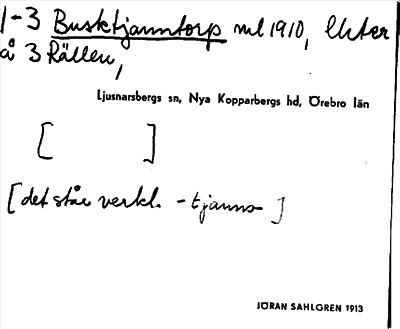 1-3 Busktjanntorp ml 1910,
å 3 Rällen,
Ljusnarsbergs sn, Nya Kopparbergs hd, Örebro län
[ ]
[det står verkl. -tjanns-]
JÖRAN SAHLGREN 1913